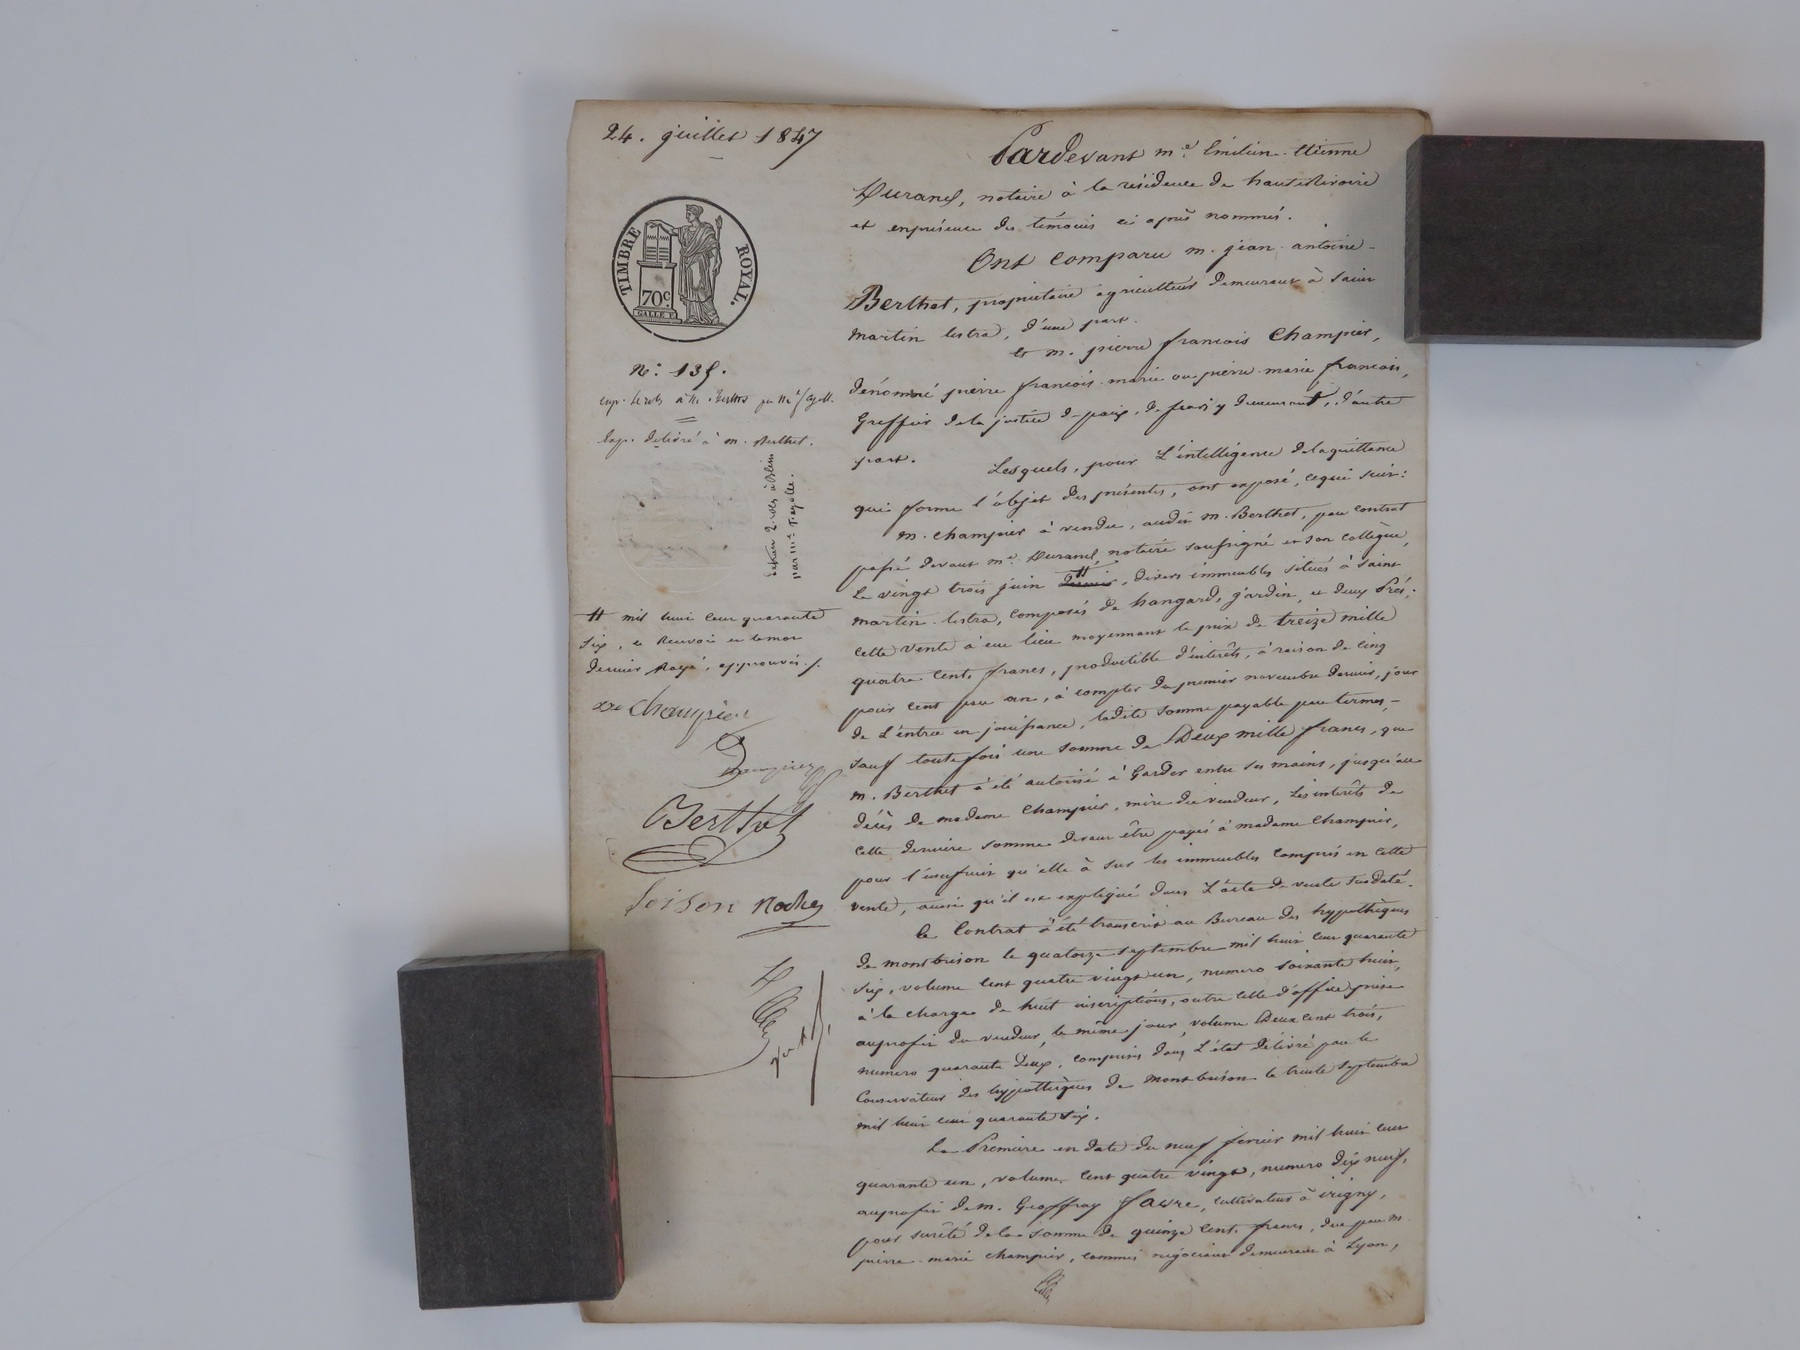 24. juillet 1847
TIMBRE ROYAL.
70c.
N.° 135.
exp. délivré à m. Berthet.
# mil huit cent quarante
six, et Renvoi et le mot
dernier Rayé, approuvés ./.
Champier
Berthet
Pardevant m.e Emilien Etienne
Durand, notaire à la résidence de hauterivoire
et en présence des témoins ci après nommés.
Ont comparu m. jean antoine
Berthet, propriétaire agriculteur demeurant à Saint
martin lestra, d'une part.
et m. pierre françois Champier,
dénommé pierre françois marie ou pierre marie françois,
Greffier de la justice de paix, de feurs y demeurant, d'autre
part.
Lesquels, pour L'intelligence de la quittance
qui forme l'objet des présentes, ont exposé, ce qui suit:
m. champier à vendu, audit m. Berthet, par contrat
passé devant m.e Durand, notaire soussigné et son collègue,
Le vingt trois juin dernier #, divers immeubles situés à Saint
martin lestra, composés de hangards, jardin, et deux Prés;
cette vente à eu lieu moyennant le prix de treize mille
quatre cents francs, productible d'intérêts, à raison de cinq
pour cent par an, à compter du premier novembre dernier, jour
de L'entrée en jouissance, ladite somme payable par termes,
sauf toutefois une somme de Deux mille francs, que
m. Berthet à été autorisé à Garder entre ses mains, jusqu'au
décès de madame Champier, mère du vendeur, Les intérêts de
cette dernière somme devant être payés à madame Champier,
pour l'usufruit qu'elle à sur les immeubles compris en cette
vente, ainsi qu'il est expliqué dans L'acte de vente susdaté.
Ce Contrat à été transcrit au Bureau des hypothèques
de montbrison le quatorze septembre mil huit cent quarante
six, volume cent quatre vingt un, numero soixante huit,
à la charge de huit inscriptions, outre celle d'office prise
au profit du vendeur, le même jour, volume Deux cent trois,
numero quarante Deux, compris dans L'état délivré par le
Conservateur des hypothèques de Montbrison le trente septembre
mil huit cent quarante six.
La Premiere en date du neuf fevrier mil huit cent
quarante un, volume cent quatre vingt, numero dix neuf,
au profit de m. Geoffray favre, cultivateur à irigny,
pour sureté de la somme de quinze cents francs, due par m.
pierre marie champier, commis négociant demeurant à Lyon,